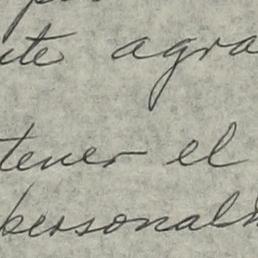 te agra
tener el
personalm